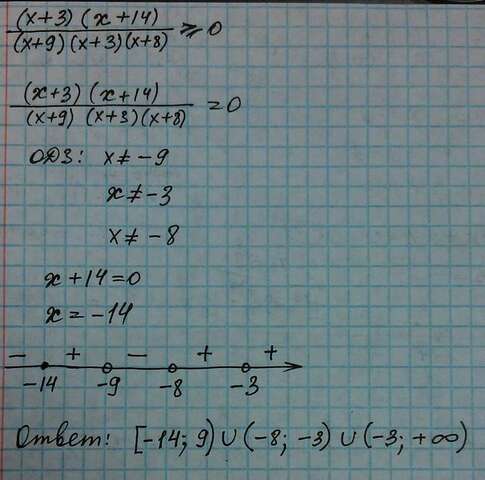 (x+3)(x+14)/(x+9)(x+3)(x+8) ⩾ 0
(x+3)(x+14)/(x+9)(x+3)(x+8) = 0
ОДЗ: x ≠ -9
x ≠ -3
x ≠ -8
x+14=0
x = -14
- + - + +
-14 -9 -8 -3
Ответ: [-14; 9) ∪ (-8; -3) ∪ (-3; +∞)